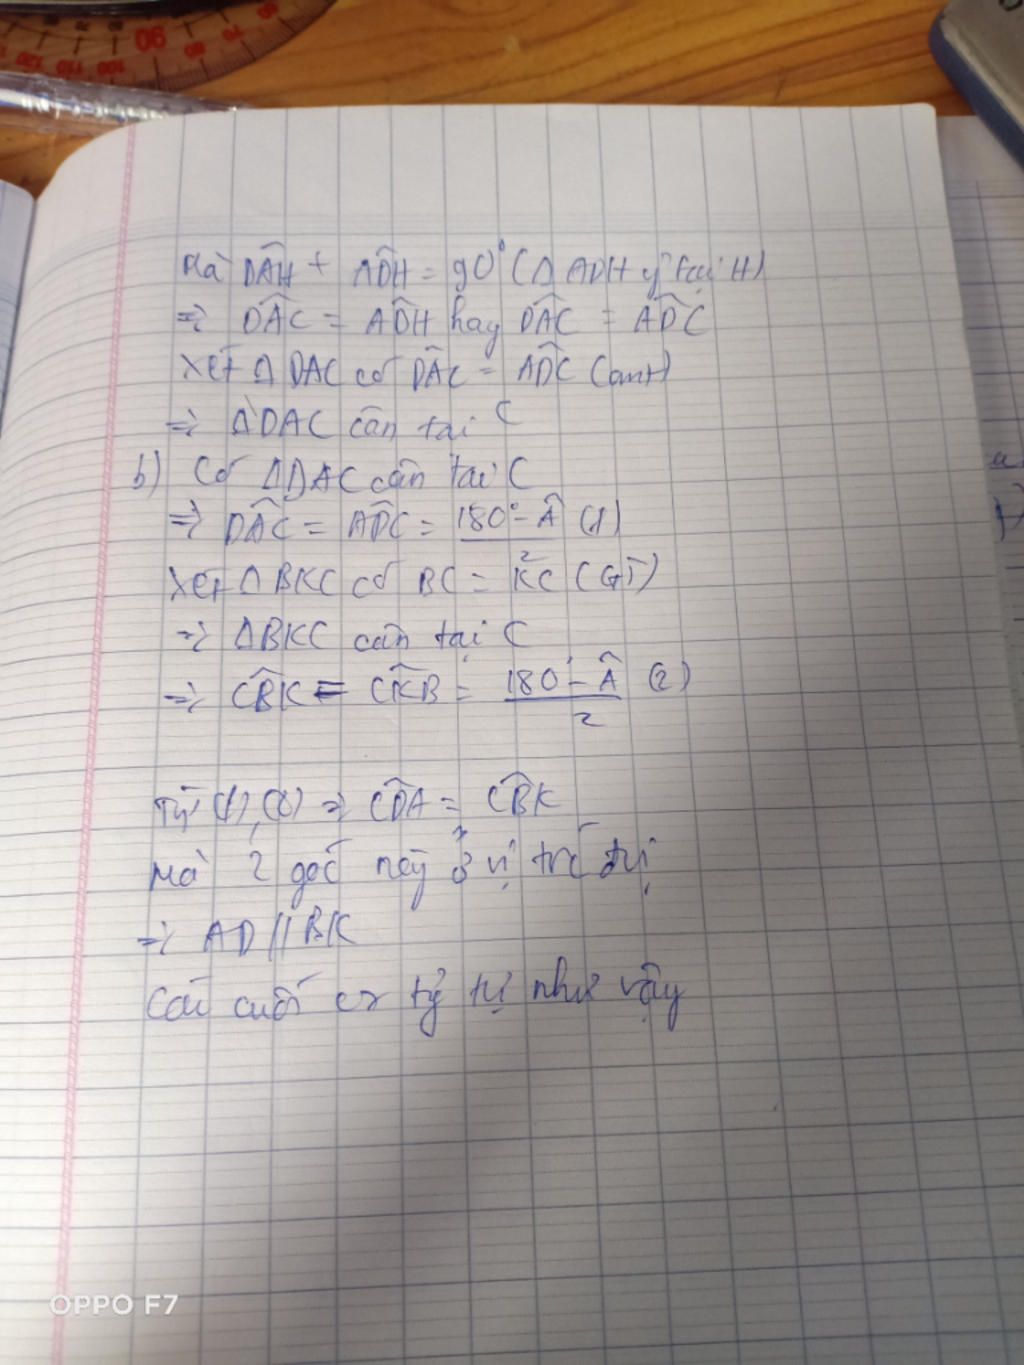 90
Mà DÂH + ADH = 90° (Δ ADH v tại H)
=> DÂC = ADH hay DÂC = ADC
Xét Δ DAC có DÂC = ADC (cmt)
=> ΔDAC cân tại C
b) Có ΔDAC cân tại C
=> DÂC = ADC = 180° - Â / 2 (1)
Xét Δ BKC có BC = KC (GT)
=> ΔBKC cân tại C
=> CBK = CKB = 180° - Â / 2 (2)
Từ (1), (2) => CDA = CBK
Mà 2 góc này ở vị trí
=> AD // BK
Cái cuối tự như vậy
OPPO F7